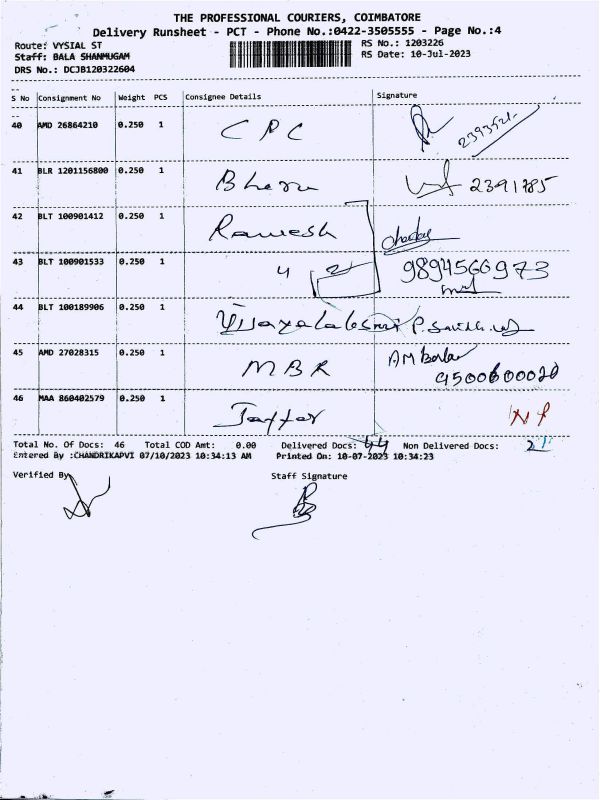 THE PROFESSIONAL COURIERS, COIMBATORE
Delivery Runsheet - PCT - Phone No.:0422-3505555 - Page No.:4
Route: VYSIAL ST
RS No.: 1203226
Staff: BALA SHANMUGAM
RS Date: 10-Jul-2023
DRS No.: DCJB120322604
S No Consignment No Weight PCS Consignee Details Signature
40 AMD 26864210 0.250 1 CPC 2393521
41 BLR 1201156800 0.250 1 2391785
42 BLT 100901412 0.250 1 Ramesh
43 BLT 100901533 0.250 1 4 2 9894566973
44 BLT 100189906 0.250 1
45 AMD 27028315 0.250 1 MBR AM
9500600020
46 MAA 860402579 0.250 1
Total No. Of Docs: 46 Total COD Amt: 0.00 Delivered Docs: 44 Non Delivered Docs: 2
Entered By :CHANDRIKAPVI 07/10/2023 10:34:13 AM Printed On: 10-07-2023 10:34:23
Verified By Staff Signature